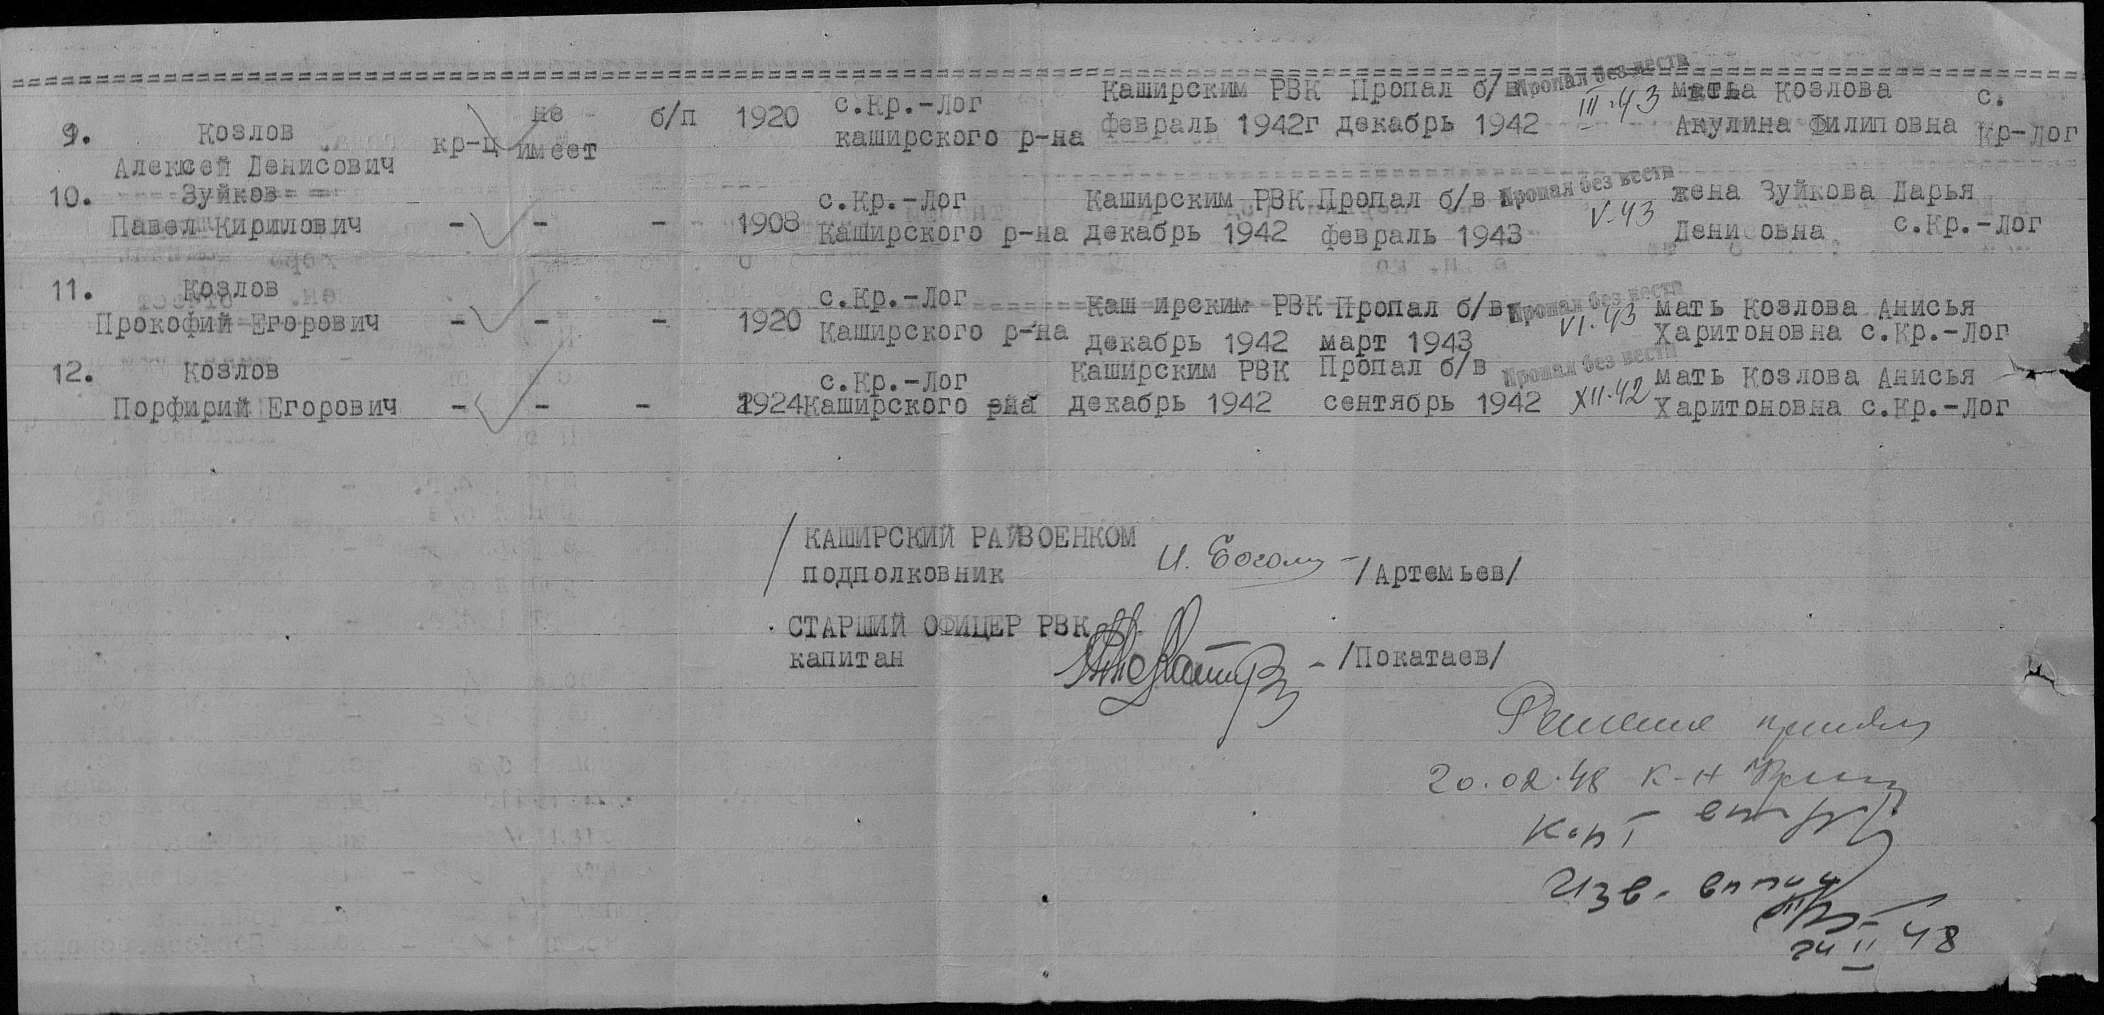 9. Козлов Алексей Денисович кр-ц не имеет б/п 1920 с.Кр.-Лог каширского р-на Каширским РВК февраль 1942г Пропал б/в декабрь 1942 Пропал без вести III.43 мать Козлова Акулина Филиповна с. Кр-Лог
10. Зуйков Павел Кирилович - - - 1908 с.Кр.-Лог Каширского р-на Каширским РВК декабрь 1942 Пропал б/в февраль 1943 Пропал без вести V.43 жена Зуйкова Дарья Денисовна с.Кр.-Лог
11. Козлов Прокофий Егорович - - - 1920 с.Кр.-Лог Каширского р-на Каш ирским РВК декабрь 1942 Пропал б/в март 1943 Пропал без вести VI.43 мать Козлова Анисья Харитоновна с.Кр.-Лог
12. Козлов Порфирий Егорович - - - 1924 с.Кр.-Лог Каширского рна Каширским РВК декабрь 1942 Пропал б/в сентябрь 1942 Пропал без вести XII.42 мать Козлова Анисья Харитоновна с.Кр.-Лог
/ КАШИРСКИЙ РАЙВОЕНКОМ
подполковник -/Артемьев/
СТАРШИЙ ОФИЦЕР РВК
капитан -/Покатаев/
20.02.48 к-н
Изв.
24 II 48